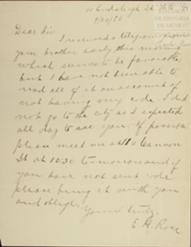 Dear Sir
I received a telegram from
your brother early this morning
which seems to be favorable,
but I have not been able to
read all of it on account of
not having my code. I did
not go to the city as I expected
all day to see you, if possible
please meet me at 110 Cannon
St at 10:30 to-morrow and if
you have not sent code
please bring it with you
and oblige.
Yours truly,
E. A. Rose